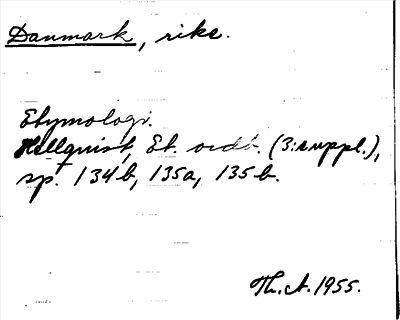 Danmark, rike.
Etymologi.
Hellquist, Et. ordb. (3:suppl.),
sp. 134b, 135a, 135b.
Th. A. 1955.